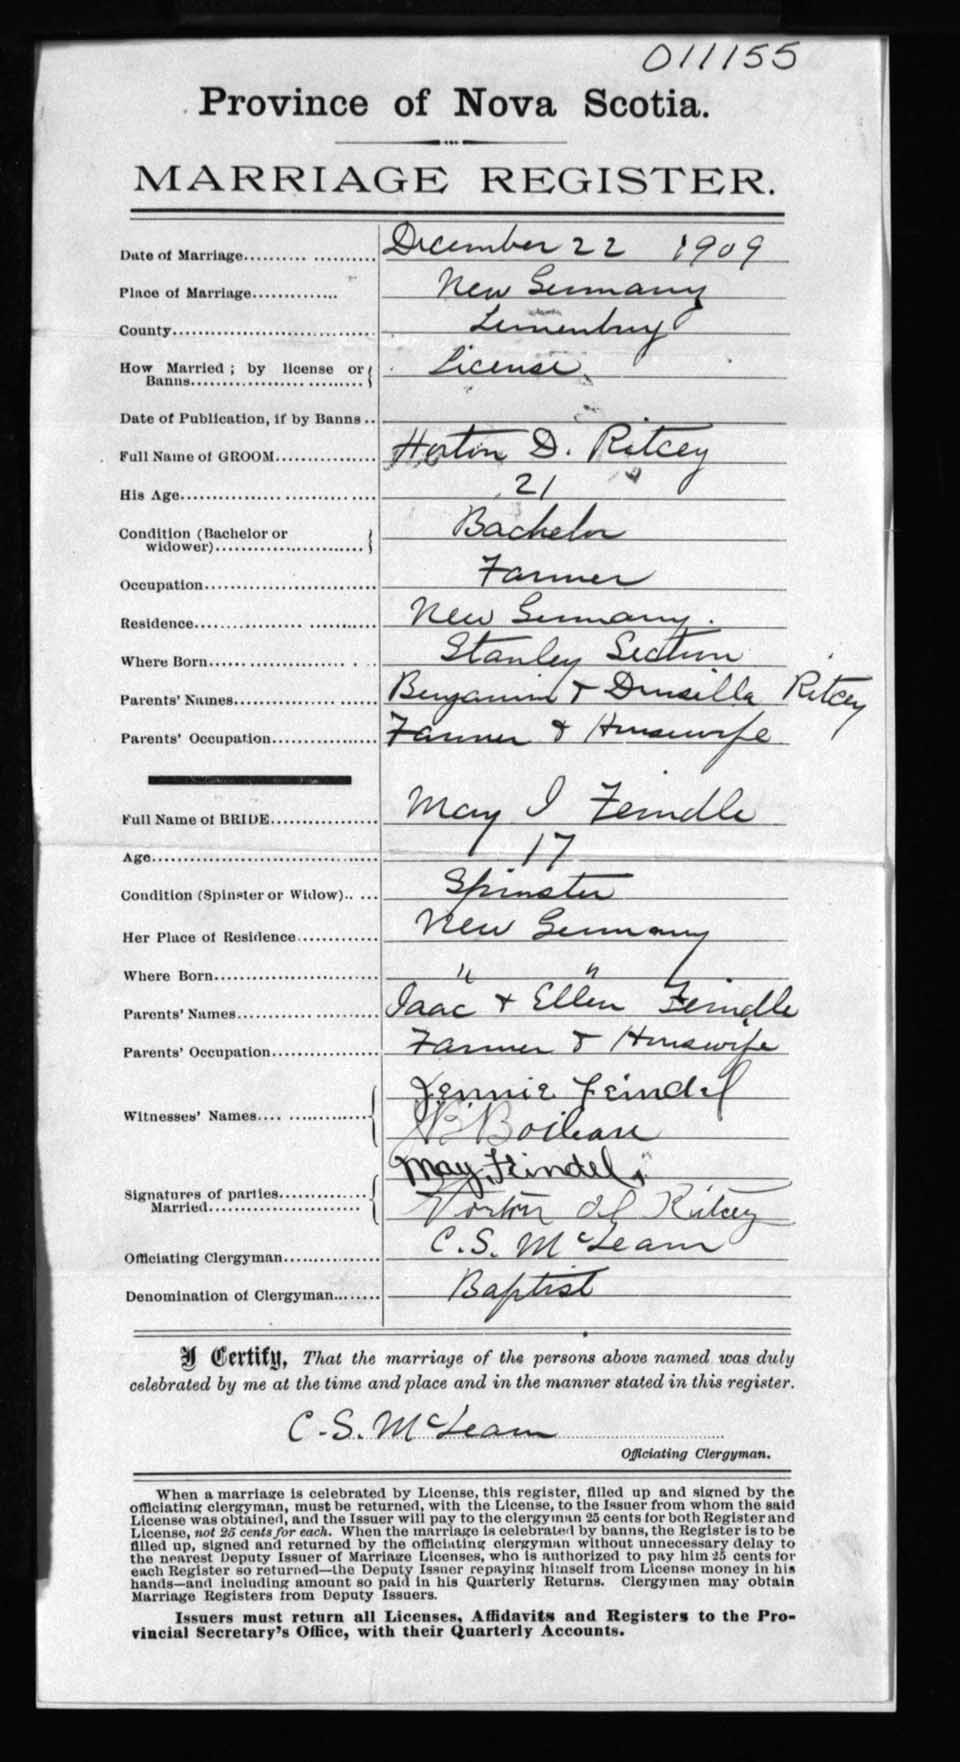 011155
Province of Nova Scotia.
MARRIAGE REGISTER.
Date of Marriage December 22 1909
Place of Marriage New Germany
County Lunenburg
How Married ; by license or Banns License
Date of Publication, if by Banns
Full Name of GROOM Horton D. Ritcey
His Age 21
Condition (Bachelor or widower) Bachelor
Occupation Farmer
Residence New Germany.
Where Born Stanley Section
Parents' Names Benjamin & Drusilla Ritcey
Parents' Occupation Farmer & Housewife
Full Name of BRIDE May I Feindle
Age 17
Condition (Spinster or Widow) Spinster
Her Place of Residence New Germany
Where Born " "
Parents' Names Isaac & Ellen Feindle
Parents' Occupation Farmer & Housewife
Witnesses' Names Jennie Feindel
Signatures of parties Married May Feindel
Ritcey
Officiating Clergyman C. S. McLearn
Denomination of Clergyman Baptist
I Certify, That the marriage of the persons above named was duly
celebrated by me at the time and place and in the manner stated in this register.
C. S. McLearn
Officiating Clergyman.
When a marriage is celebrated by License, this register, filled up and signed by the
officiating clergyman, must be returned, with the License, to the Issuer from whom the said
License was obtained, and the Issuer will pay to the clergyman 25 cents for both Register and
License, not 25 cents for each. When the marriage is celebrated by banns, the Register is to be
filled up, signed and returned by the officiating clergyman without unnecessary delay to
the nearest Deputy Issuer of Marriage Licenses, who is authorized to pay him 25 cents for
each Register so returned—the Deputy Issuer repaying himself from License money in his
hands—and including amount so paid in his Quarterly Returns. Clergymen may obtain
Marriage Registers from Deputy Issuers.
Issuers must return all Licenses, Affidavits and Registers to the Pro-
vincial Secretary's Office, with their Quarterly Accounts.